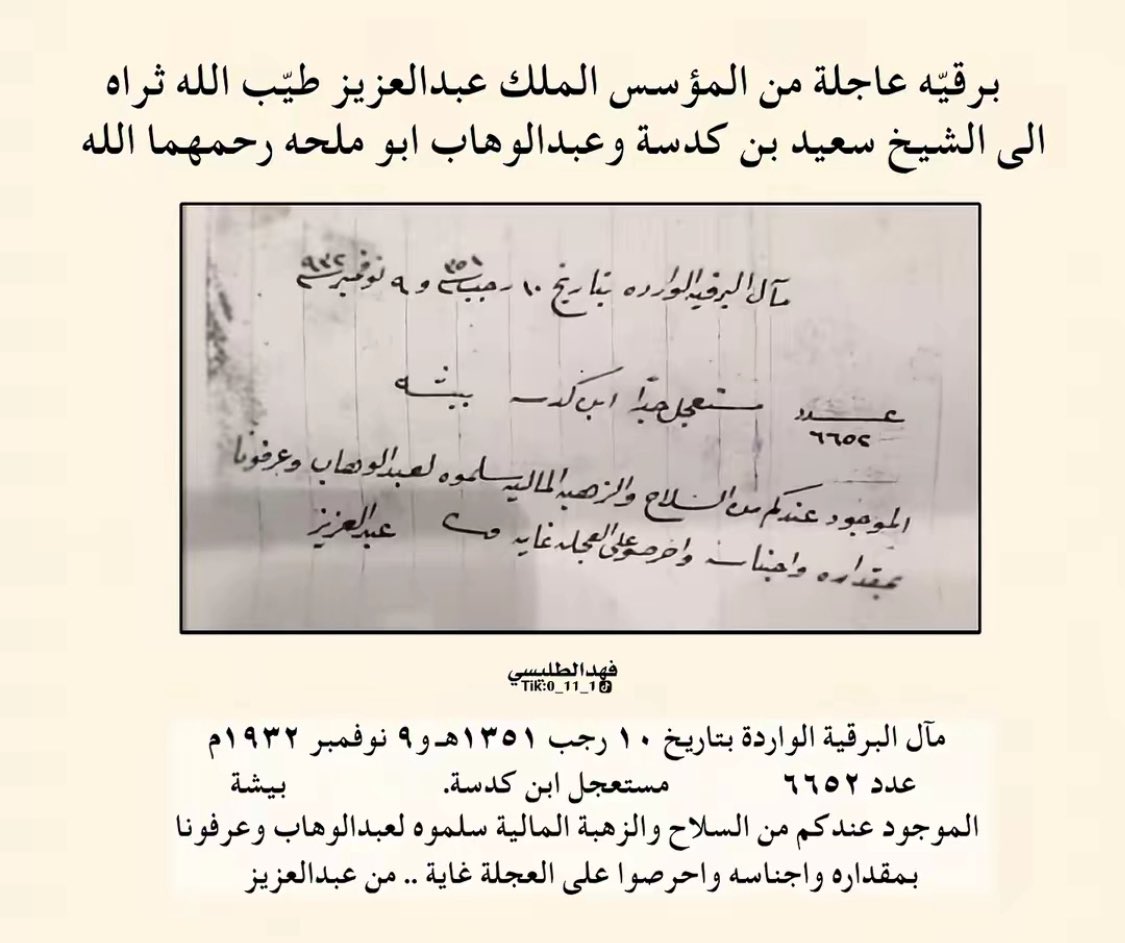 برقيّه عاجلة من المؤسس الملك عبدالعزيز طيّب الله ثراه
الى الشيخ سعيد بن كدسة وعبدالوهاب ابو ملحه رحمهما الله
مآل البرقيه الوارده بتاريخ ١٠ رجب سنة ٣٥١ و ٩ نوفمبر سنة ٩٣٢
عدد ٦٦٥٢ مستعجل جدًا ابن كدسه بيشه
الموجود عندكم من السلاح والزهبه الماليه سلموه لعبدالوهاب وعرفونا
بمقداره واجناسه واحرصو على العجله غايه عبدالعزيز
فهدالطليسي
Tik:0_11_1
مآل البرقية الواردة بتاريخ ١٠ رجب ١٣٥١هـ و٩ نوفمبر ١٩٣٢م
عدد ٦٦٥٢ مستعجل ابن كدسة. بيشة
الموجود عندكم من السلاح والزهبة المالية سلموه لعبدالوهاب وعرفونا
بمقداره واجناسه واحرصوا على العجلة غاية .. من عبدالعزيز